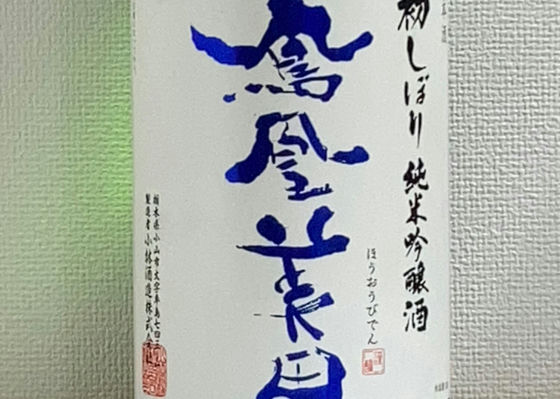 初しぼり 純米吟醸酒
鳳凰美田
ほうおうびでん
栃木県小山市大字卒島七四三
製造者 小林酒造株式会